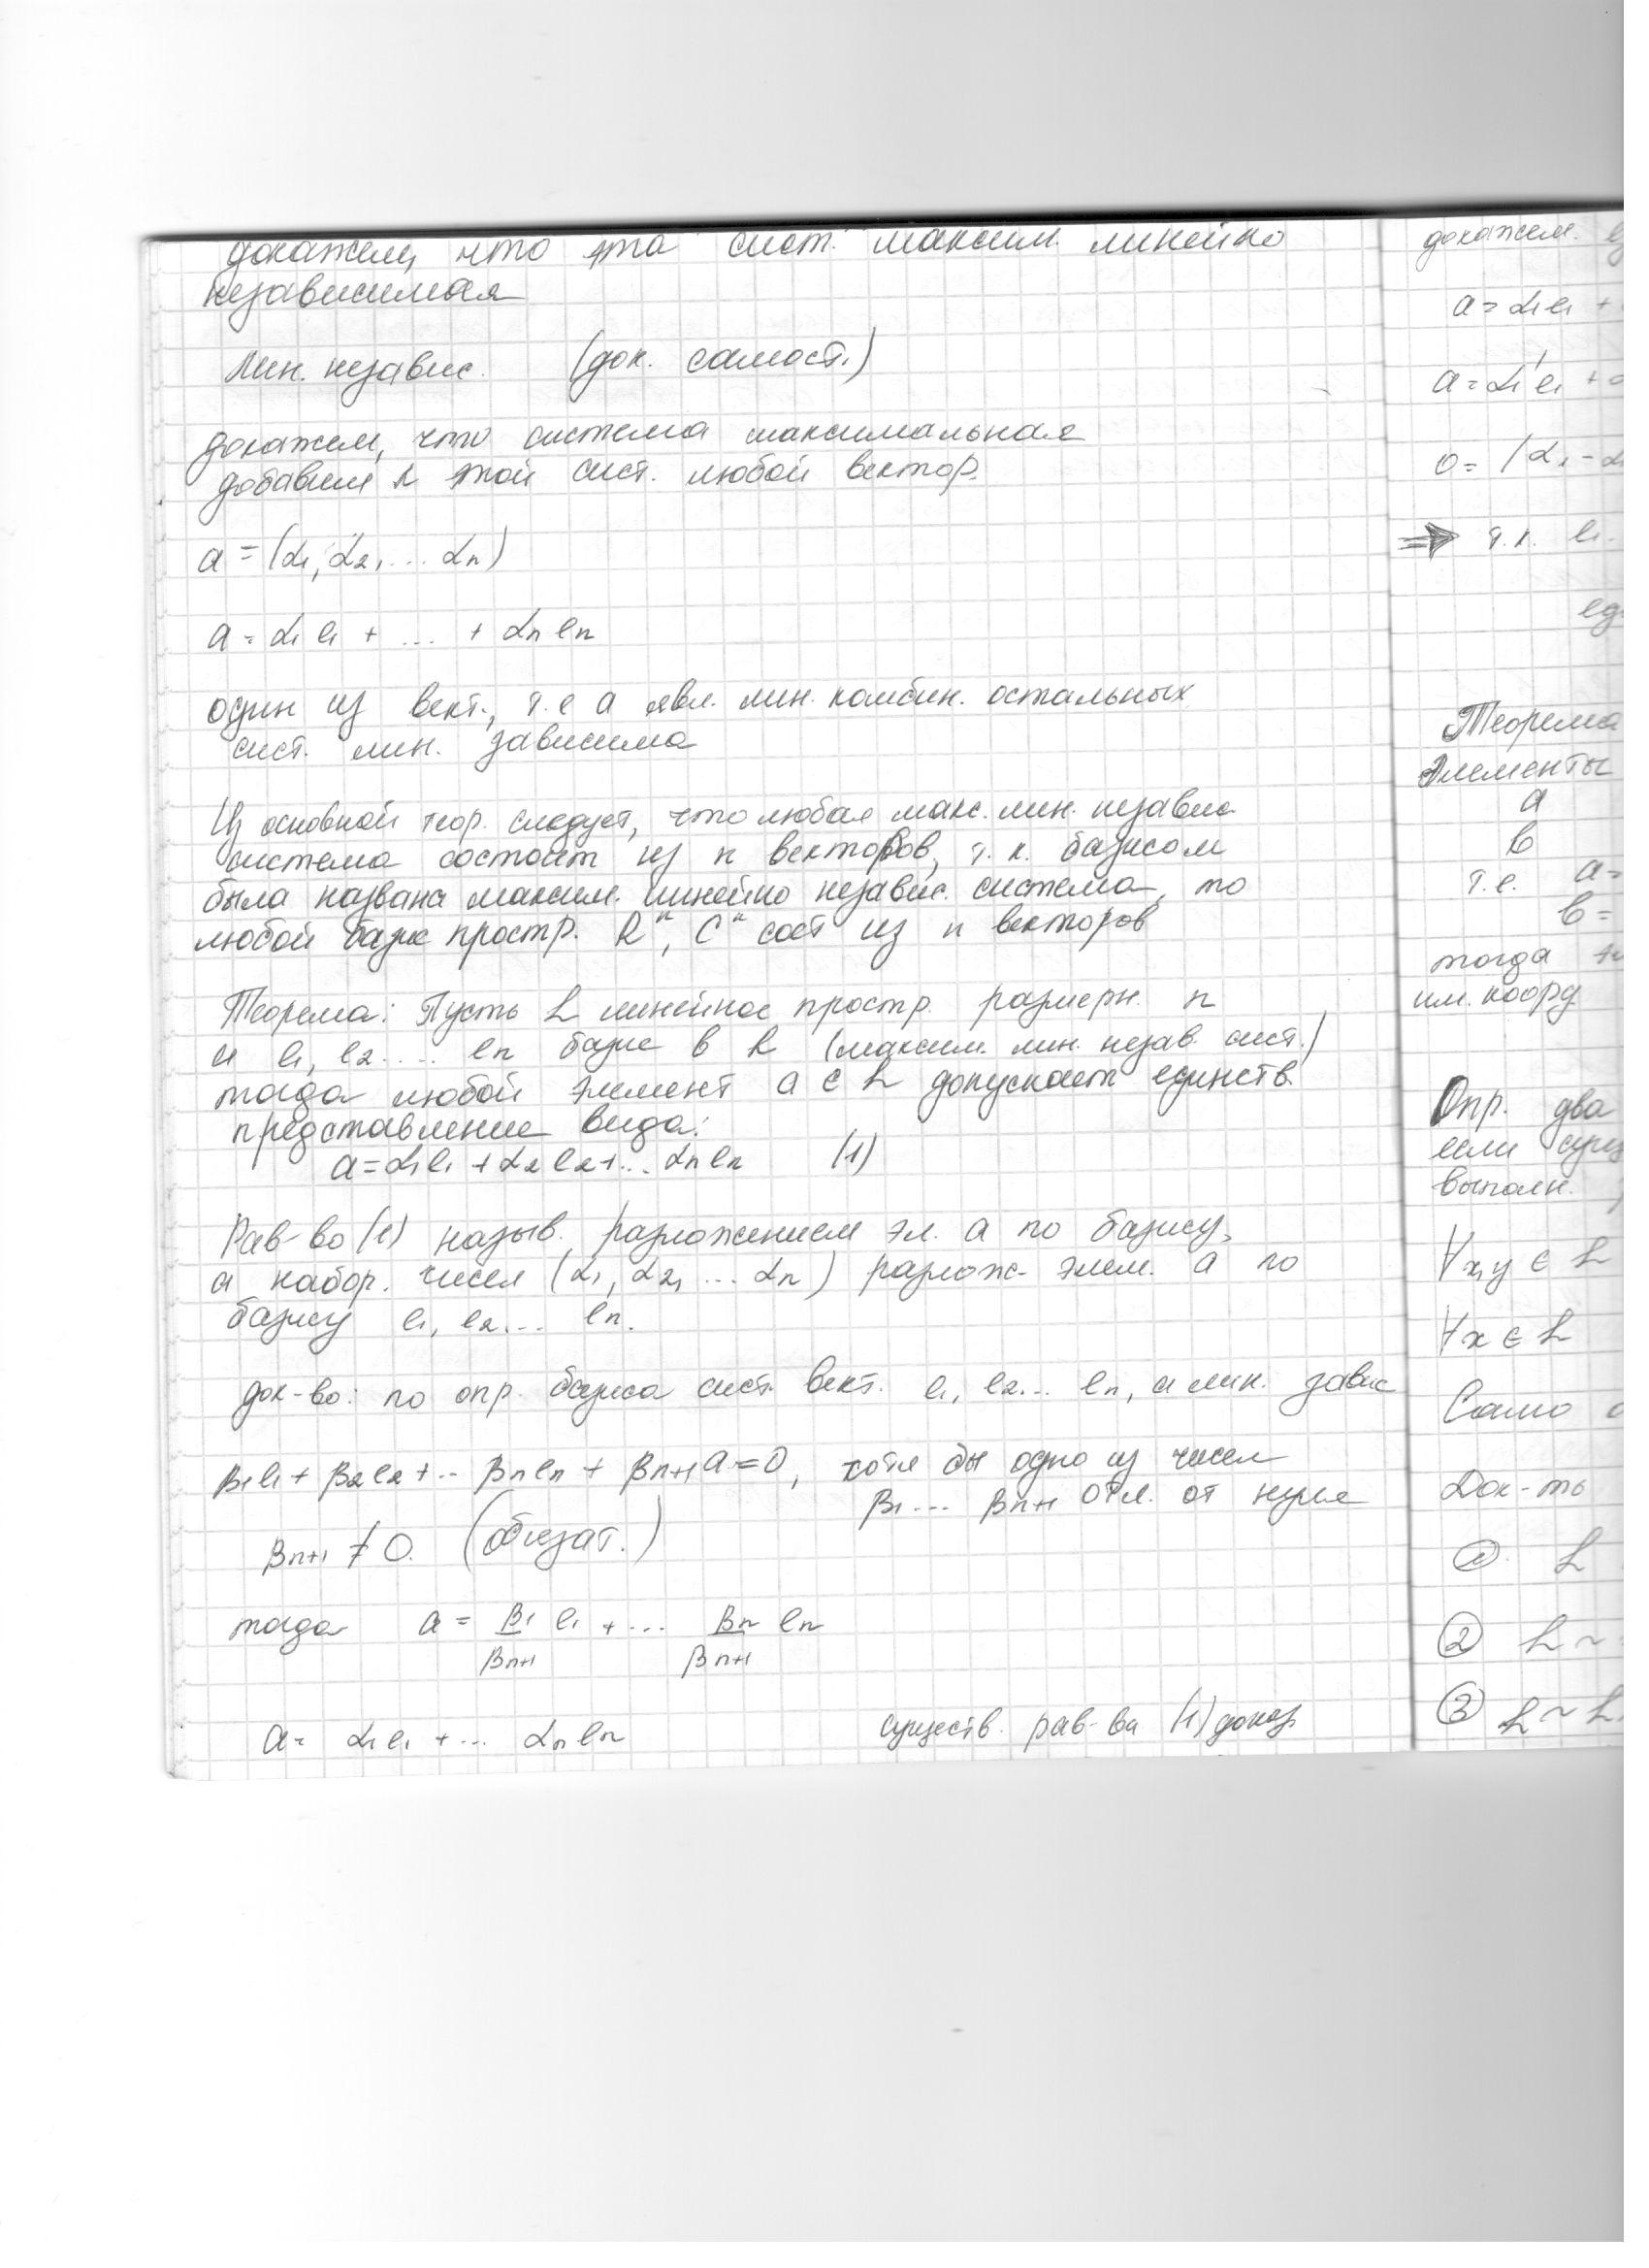 докажем, что эта сист. максим. линейно
независимая
Лин. независ. (док. самост.)
докажем, что система максимальная
добавим к этой сист. любой вектор.
a = (α1, α2, ... αn)
a = α1 e1 + ... + αn en
один из вект., т.е a явл. лин. комбин. остальных
сист. лин. зависима
Из основной теор. следует, что любая макс. лин. независ
система состоит из n векторов, т.к. базисом
была названа максим. линейно независ. система, то
любой базис простр. R^n, C^n сост из n векторов
Теорема: Пусть L линейное простр. размерн. n
и e1, e2 .... en базис в L (максим. лин. незав. сист.)
тогда любой элемент a ∈ L допускает единств.
представление вида:
a = α1e1 + α2e2 + ... αnen (1)
Рав-во (1) назыв. разложением эл. a по базису,
а набор. чисел (α1, α2, ... αn) разлож. элем. a по
базису e1, e2 ... en.
док-во: по опр. базиса сист. вект. e1, e2 ... en, a лин. завис
β1e1 + β2e2 + .. βnen + βn+1 a = 0, хотя бы одно из чисел
β1 ... βn+1 отл. от нуля
βn+1 ≠ 0. (обязат.)
тогда a = β1/βn+1 e1 + ... βn/βn+1 en
a = α1e1 + ... αnen существ. рав-ва (1) доказ.
докажем.
a = α1e1 +
a = α1'e1 +
0 = (α1 -
⇒ т.к. e1
Теорема
Элементы
a
b
т.е. a =
b =
тогда
им. коорд
Опр. два
если
выполн.
∀x,y ∈ L
∀x ∈ L
Само
Док-ть
① L
② L ~
③ L ~ L